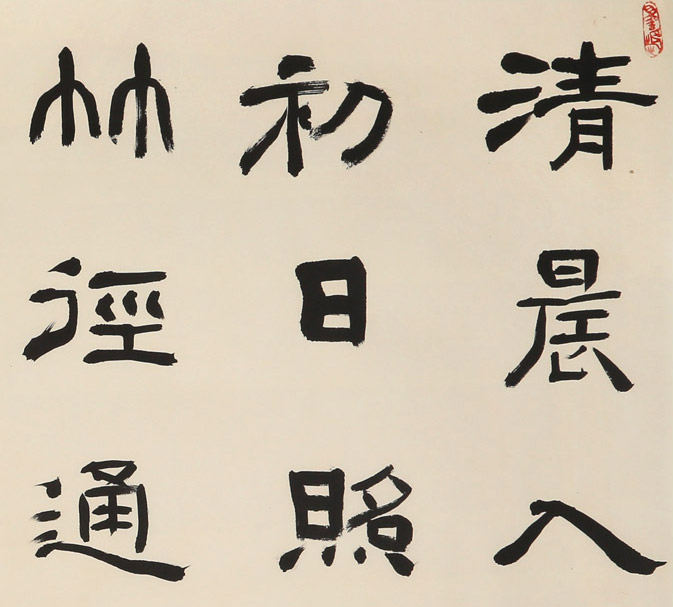 清晨入
初日照
竹徑通